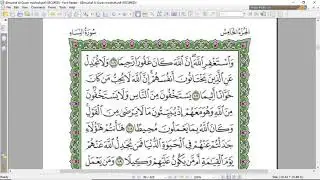 سُورَةُ النِّسَاءِ
الجُزْءُ الخَامِسُ
وَاسْتَغْفِرِ اللَّهَ إِنَّ اللَّهَ كَانَ غَفُورًا رَحِيمًا وَلَا تُجَادِلْ
عَنِ الَّذِينَ يَخْتَانُونَ أَنْفُسَهُمْ إِنَّ اللَّهَ لَا يُحِبُّ مَنْ كَانَ
خَوَّانًا أَثِيمًا يَسْتَخْفُونَ مِنَ النَّاسِ وَلَا يَسْتَخْفُونَ
مِنَ اللَّهِ وَهُوَ مَعَهُمْ إِذْ يُبَيِّتُونَ مَا لَا يَرْضَى مِنَ الْقَوْلِ
وَكَانَ اللَّهُ بِمَا يَعْمَلُونَ مُحِيطًا هَا أَنْتُمْ هَؤُلَاءِ
جَادَلْتُمْ عَنْهُمْ فِي الْحَيَاةِ الدُّنْيَا فَمَنْ يُجَادِلُ اللَّهَ عَنْهُمْ
يَوْمَ الْقِيَامَةِ أَمْ مَنْ يَكُونُ عَلَيْهِمْ وَكِيلًا وَمَنْ يَعْمَلْ